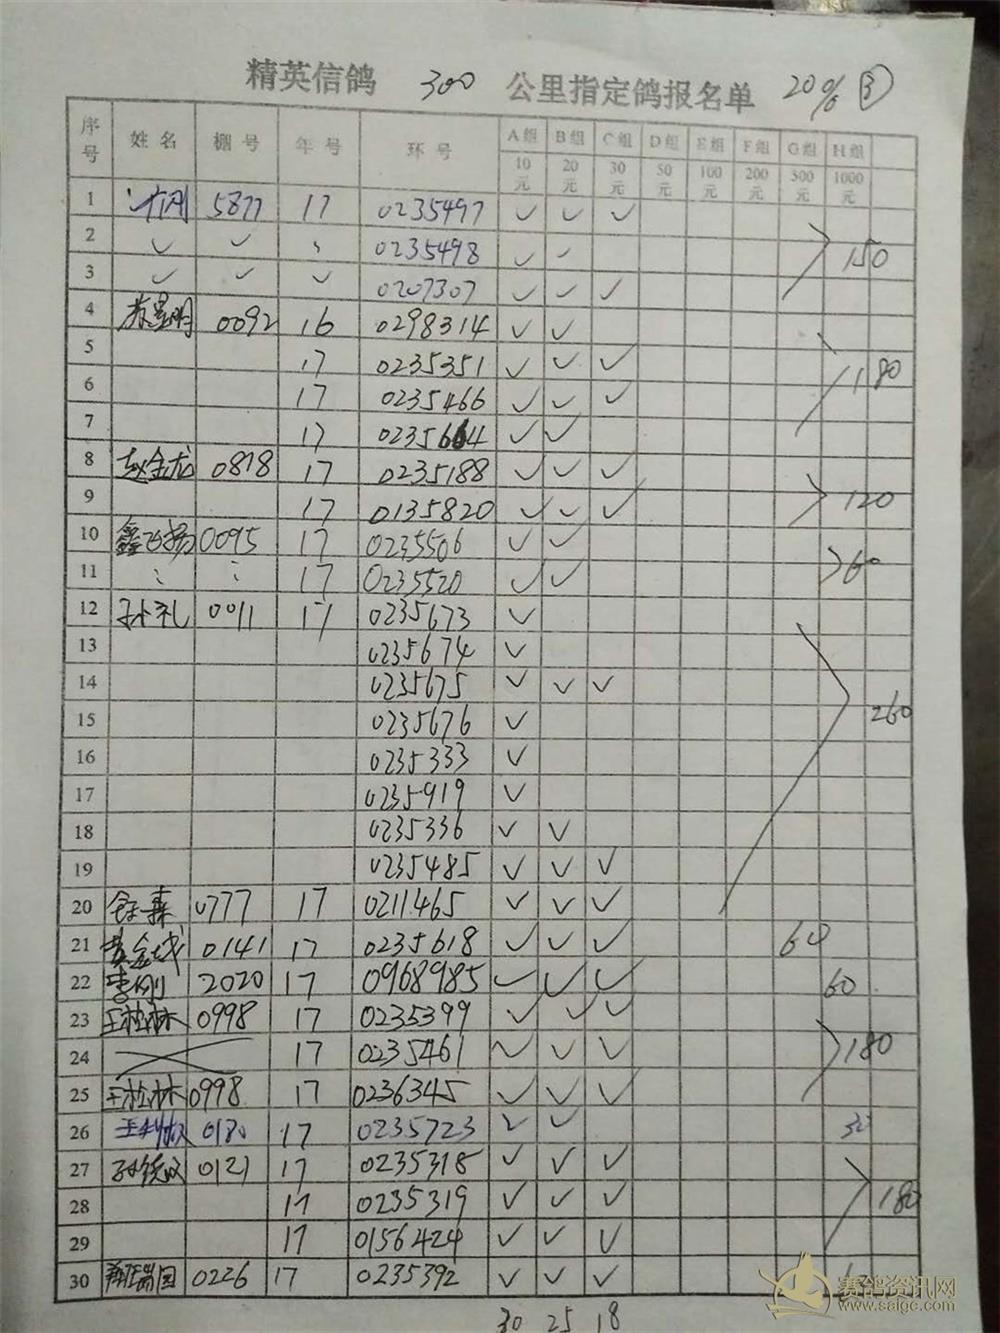 精英信鸽 300 公里指定鸽报名单 20% ③
序号 姓名 棚号 年号 环号 A组 10元 B组 20元 C组 30元 D组 50元 E组 100元 F组 200元 G组 500元 H组 1000元
1 5877 17 0235497 ✓ ✓ ✓
2 ✓ ✓ 、 0235498 ✓ ✓ 150
3 ✓ ✓ ✓ 0207307 ✓ ✓ ✓
4 0092 16 0298314 ✓ ✓
5 17 0235351 ✓ ✓ ✓ 180
6 17 0235466 ✓ ✓ ✓
7 17 0235664 ✓ ✓
8 赵金龙 0818 17 0235188 ✓ ✓ ✓
9 17 0135820 ✓ ✓ ✓ 120
10 鑫飞扬 0095 17 0235506 ✓ ✓
11 : : 17 0235520 ✓ ✓ 60
12 孙礼 0011 17 0235673 ✓
13 0235674 ✓
14 0235675 ✓ ✓ ✓ 260
15 0235676 ✓
16 0235333 ✓
17 0235919 ✓
18 0235336 ✓ ✓
19 0235485 ✓ ✓ ✓
20 0777 17 0211465 ✓ ✓ ✓
21 黄金城 0141 17 0235618 ✓ ✓ ✓ 60
22 李刚 2020 17 0968985 ✓ ✓ ✓ 60
23 王松林 0998 17 0235399 ✓ ✓ ✓
24 17 0235461 ✓ ✓ ✓ 180
25 王松林 0998 17 0236345 ✓ ✓ ✓
26 0180 17 0235723 ✓ ✓ 30
27 0121 17 0235318 ✓ ✓ ✓
28 17 0235319 ✓ ✓ ✓ 180
29 17 0156424 ✓ ✓ ✓
30 0226 17 0235392 ✓ ✓ ✓
30 25 18
赛鸽资讯网
www.saigc.com